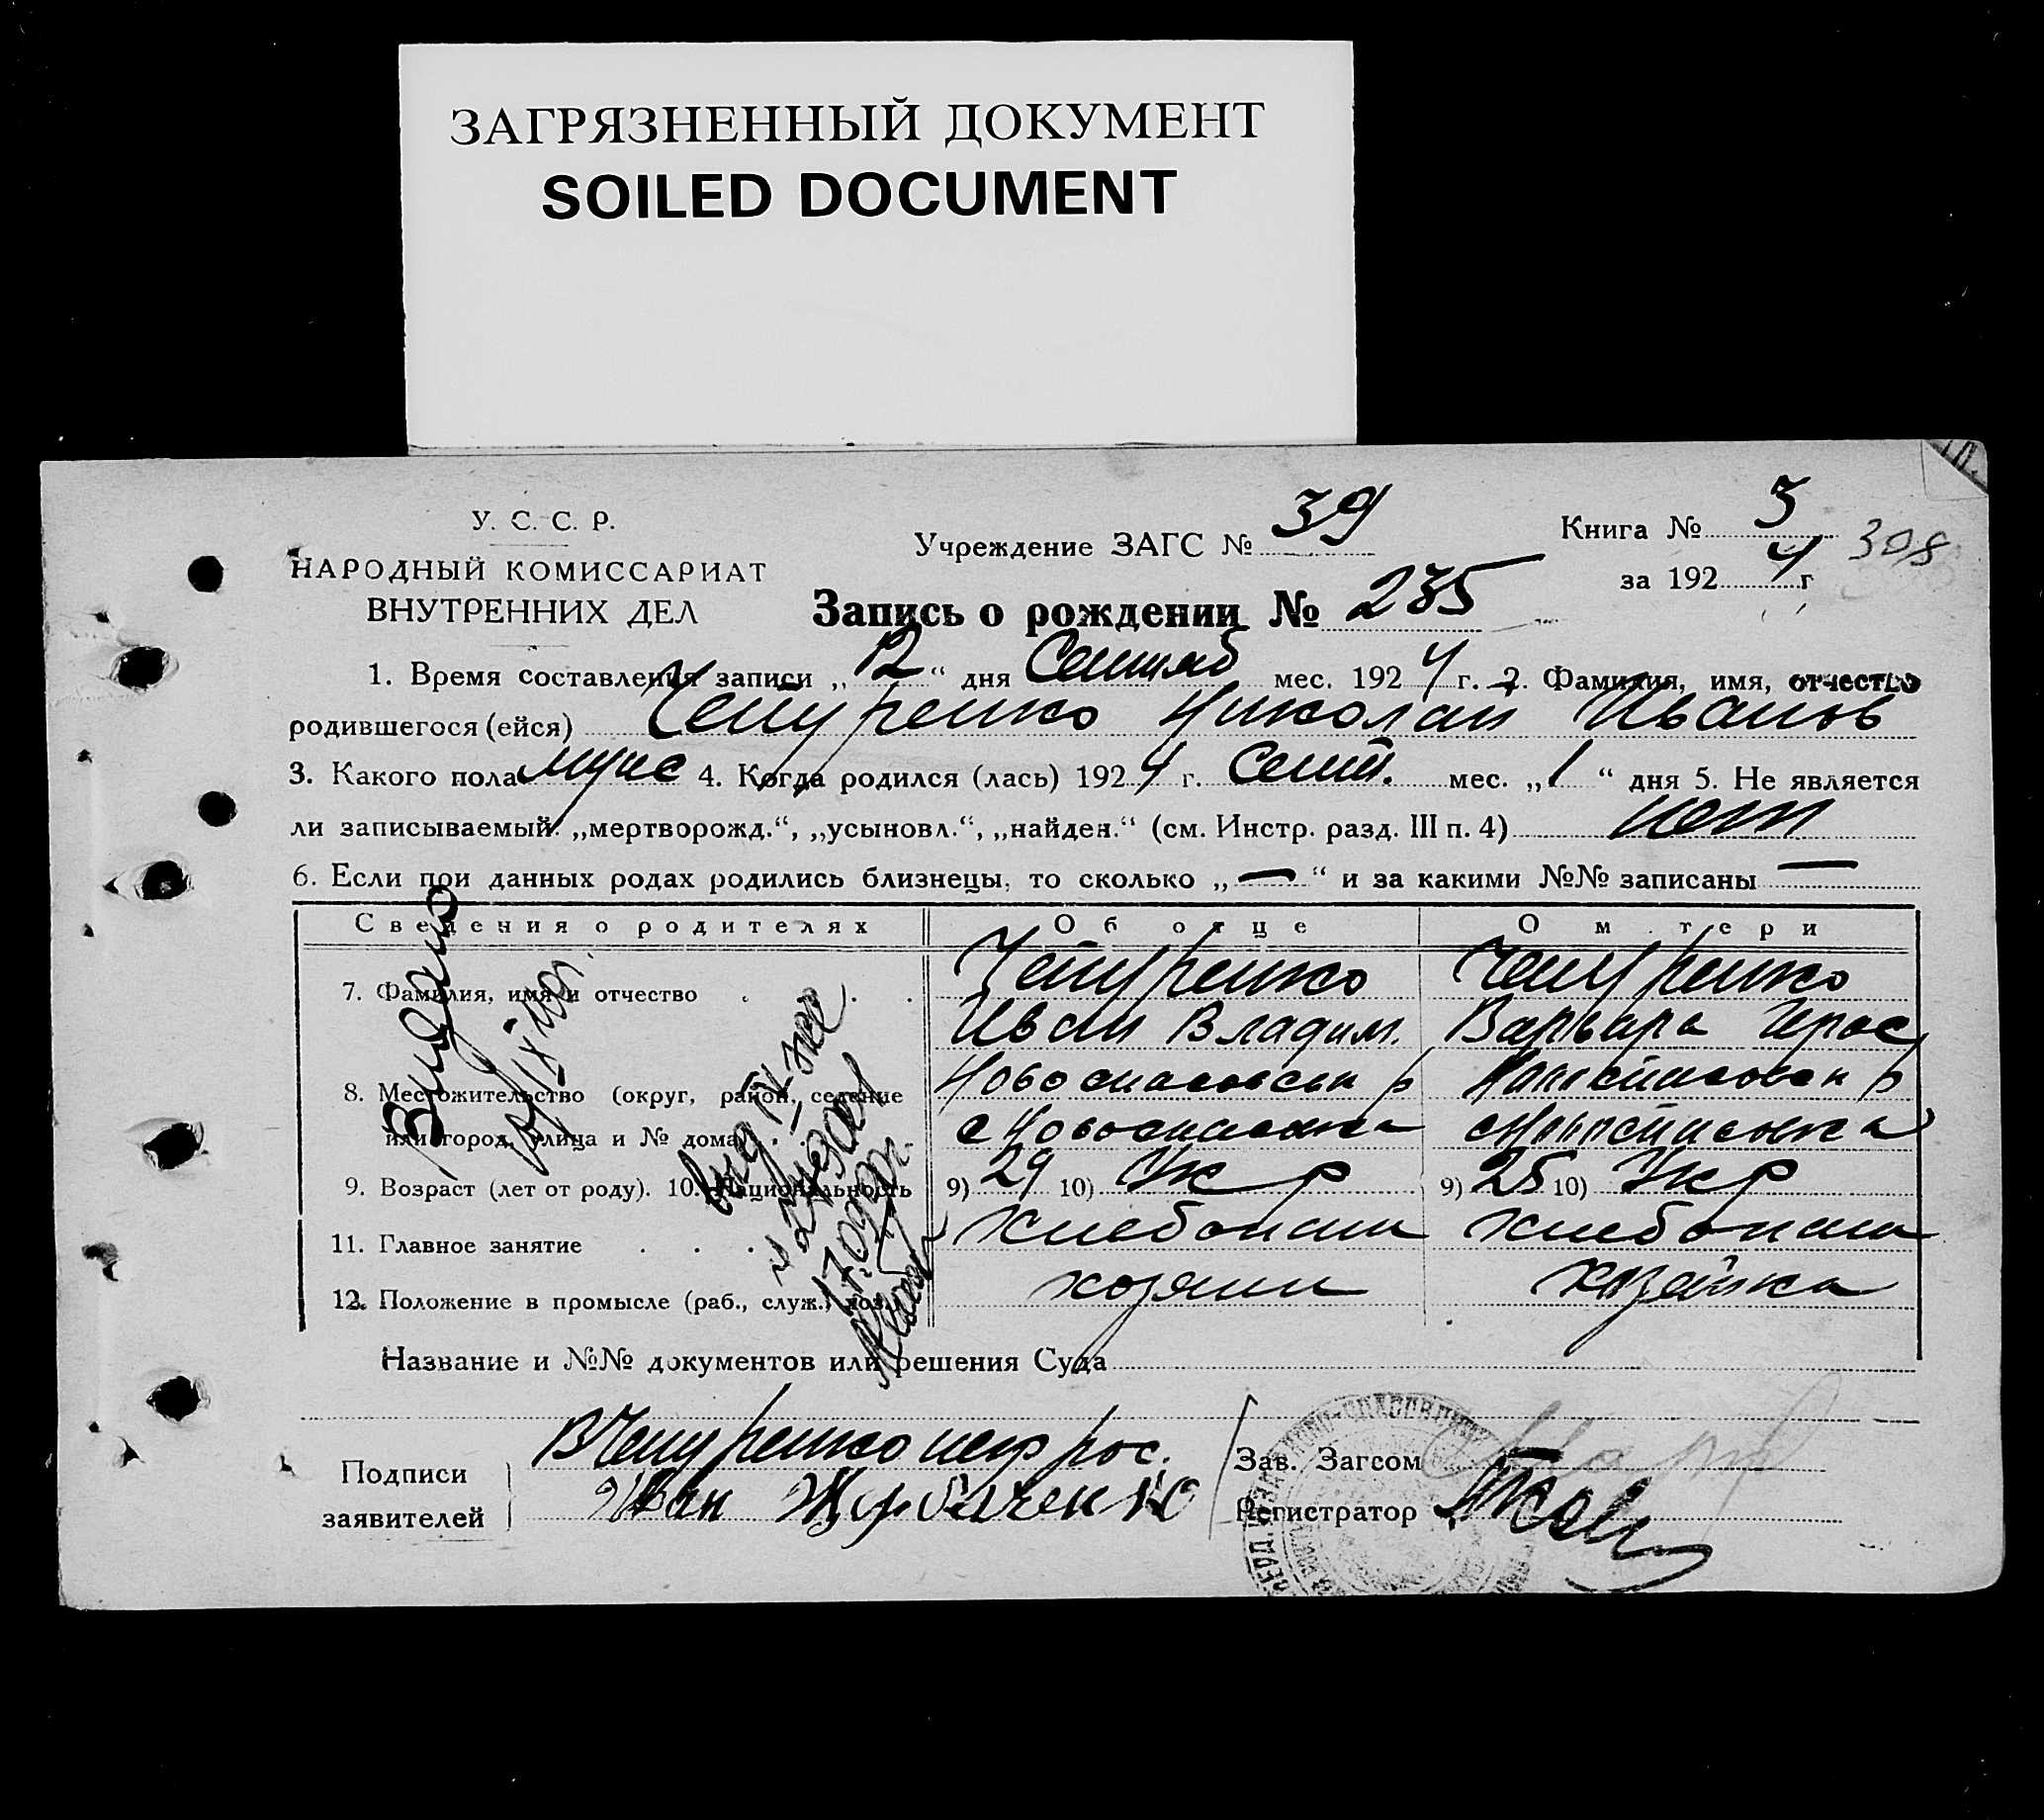 ЗАГРЯЗНЕННЫЙ ДОКУМЕНТ
SOILED DOCUMENT
У. С. С. Р.
НАРОДНЫЙ КОМИССАРИАТ
ВНУТРЕННИХ ДЕЛ
Учреждение ЗАГС № 39
Книга № 3
308
за 1924 г
Запись о рождении № 235
1. Время составления записи „12“ дня Сентяб мес. 1924 г. 2. Фамилия, имя, отчество
родившегося (ейся) Чепуренко Николай Иванов
3. Какого пола муже 4. Когда родился (лась) 1924 г. Сент. мес. „1“ дня 5. Не является
ли записываемый: „мертворожд.“, „усыновл.“, „найден.“ (см. Инстр. разд. III п. 4) нет
6. Если при данных родах родились близнецы, то сколько „—“ и за какими №№ записаны —
Сведения о родителях Об отце О матери
7. Фамилия, имя и отчество Чепуренко Чепуренко
Иван Владим. Варвара
8. Местожительство (округ, район, селение Новоспасовськ р Новоспасовск р
или город, улица и № дома) с Новоспасовка с Новоспасовка
9. Возраст (лет от роду). 10. Национальность 9) 29 10) Укр 9) 25 10) Укр
11. Главное занятие хлебопаш хлебопаш
12. Положение в промысле (раб., служ., хоз.) хозяин хозяйка
Видано
Название и №№ документов или решения Суда
Подписи
заявителей
В Чепуренко
Иван
Зав. Загсом
Регистратор